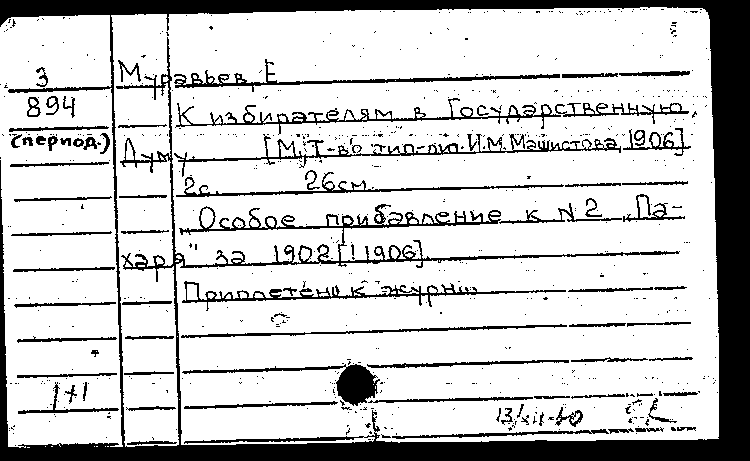 3
894
(период.)
Муравьев, Е
К избирателям в Государственную
Думу. [М., Т-во тип-лит. И.М. Машистова, 1906]
2с. 26см.
„Особое прибавление к N 2 „Па-
харя" за 1902 [! 1906]
Приплетено к журн
1+1
13/XII-60